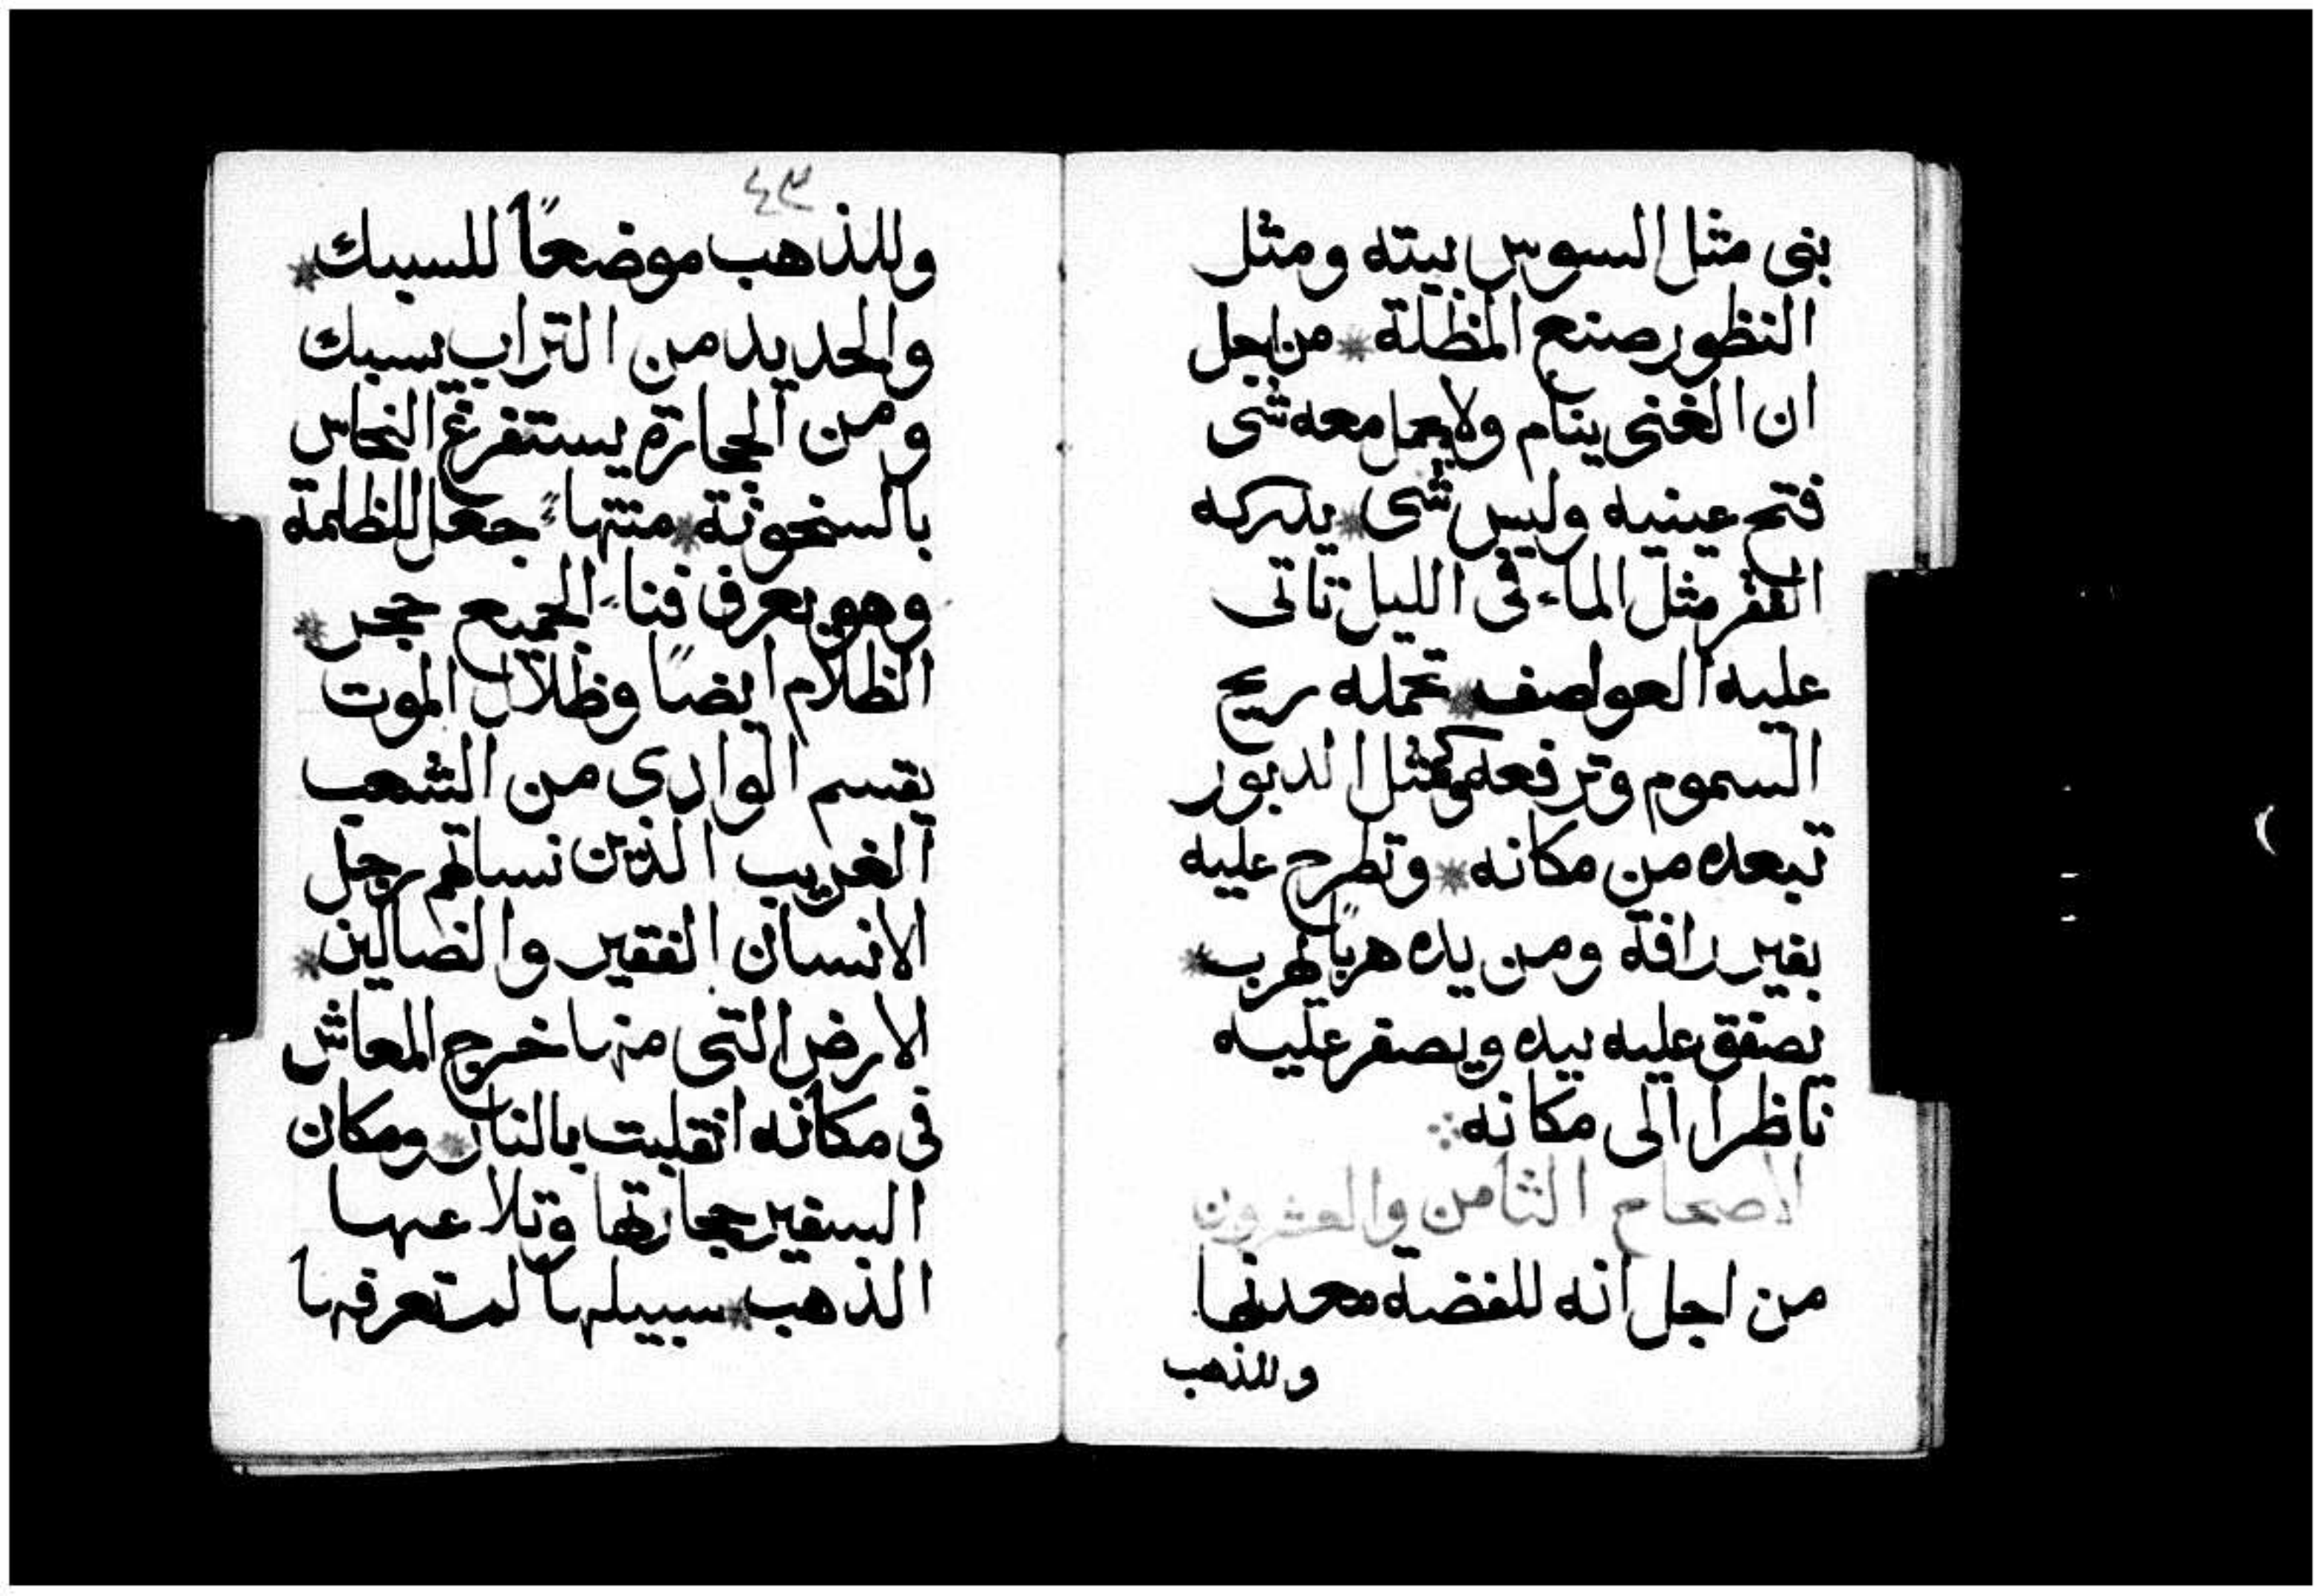 بنى مثل السوس بيته ومثل
النظور صنع المظلة * من اجل
ان الغنى ينام ولا يحمل معه شى
فتح عينيه وليس شى * يدركه
الفقر مثل الماء فى الليل تاتى
عليه العواصف * تحمله ريح
السموم وترفعه وكمثل الدبور
تبعده من مكانه * وتطرح عليه
بغير رافة ومن يده هربًا يهرب *
يصفق عليه بيده ويصفر عليه
ناظرا الى مكانه
الاصحاح الثامن والعشرون
من اجل انه للفضة معدنها
وللذهب
٤٣
وللذهب موضعًا للسبك *
والحديد من التراب يسبك
ومن الحجارة يستفرغ النحاس
بالسخونة * منتهاء جعل للظلمة
وهو يعرف فناء الجميع حجر *
الظلام ايضًا وظلال الموت
يقسم الوادى من الشعب
الغريب الذين نساهم رجل
الانسان الفقير والضالين *
الارض التى منها خرج المعاش
فى مكانه انقلبت بالنار * ومكان
السفير حجارتها وتلاعها
الذهب * سبيلها لم تعرفها